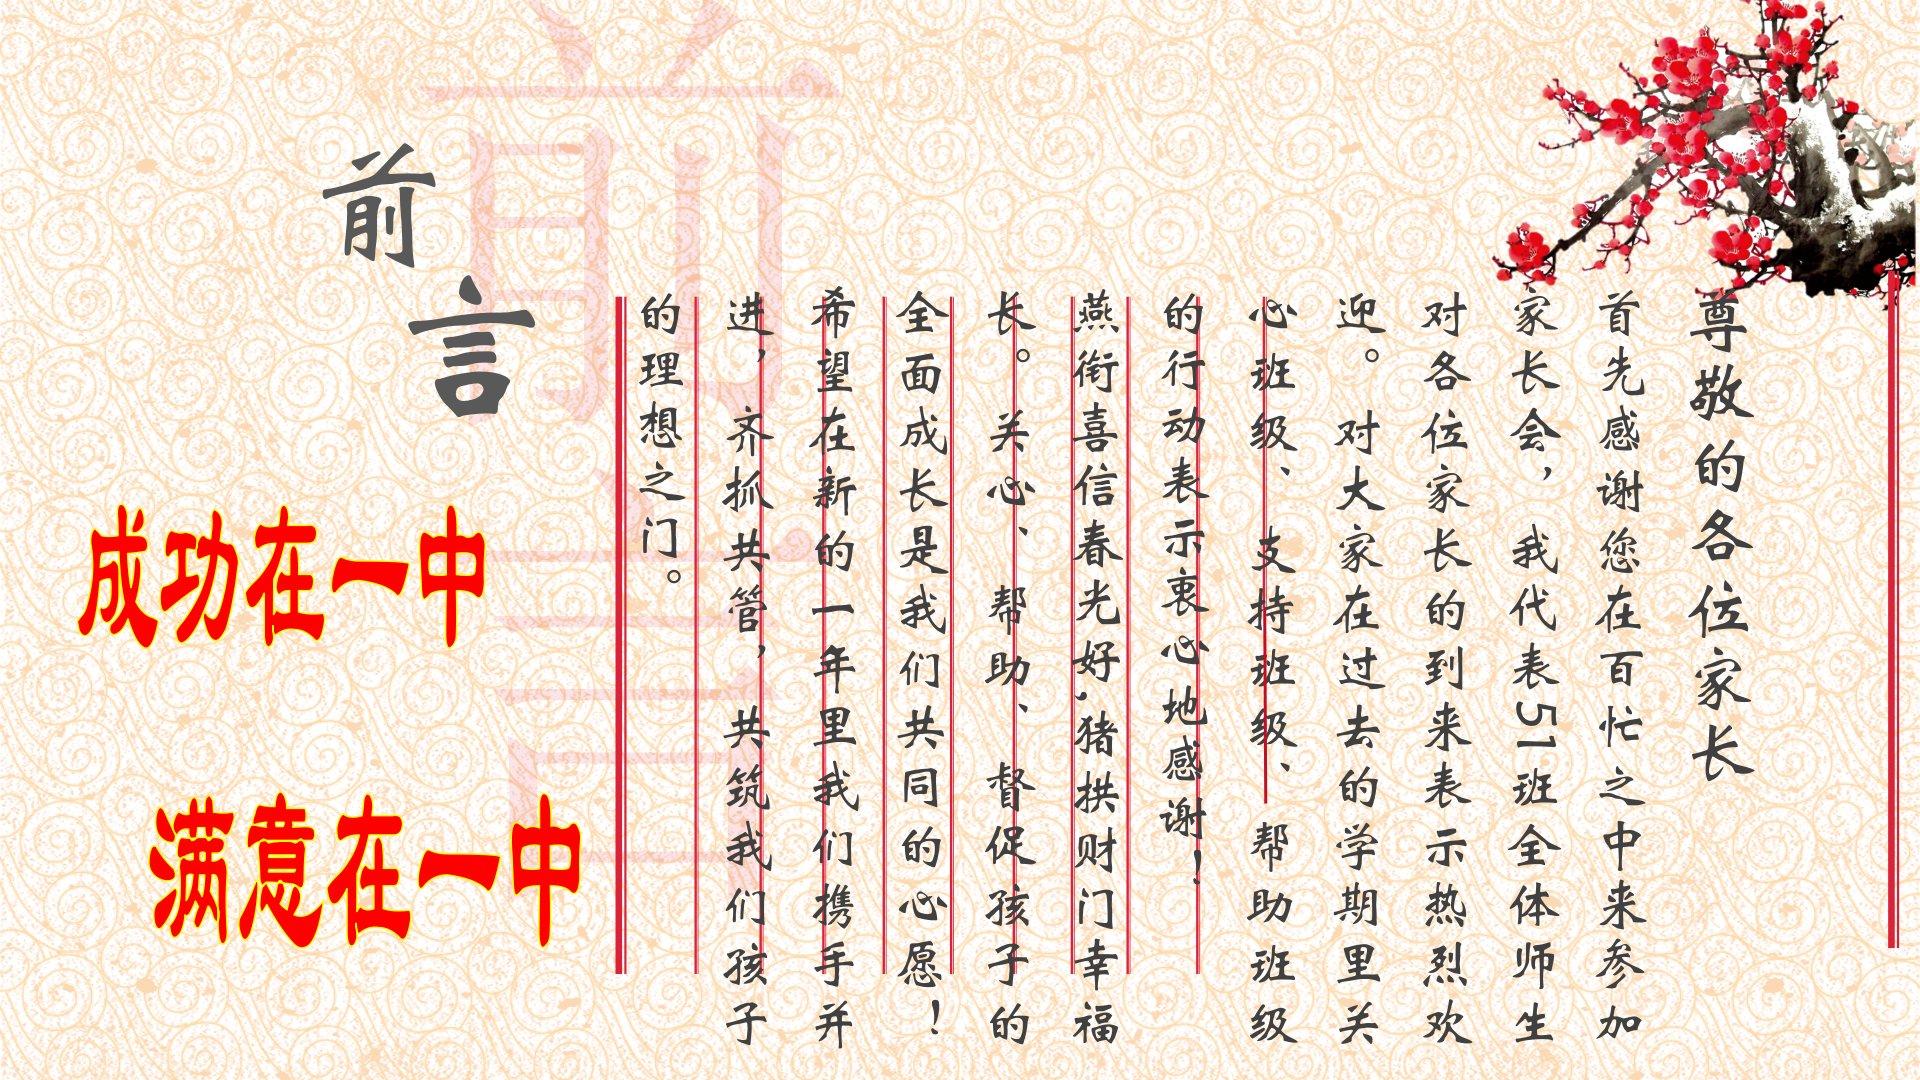 前言
尊敬的各位家长
首先感谢您在百忙之中来参加
家长会，我代表51班全体师生
对各位家长的到来表示热烈欢
迎。对大家在过去的学期里关
心班级、支持班级、帮助班级
的行动表示衷心地感谢！
燕衔喜信春光好,猪拱财门幸福
长。关心、帮助、督促孩子的
全面成长是我们共同的心愿！
希望在新的一年里我们携手并
进，齐抓共管，共筑我们孩子
的理想之门。
成功在一中
满意在一中